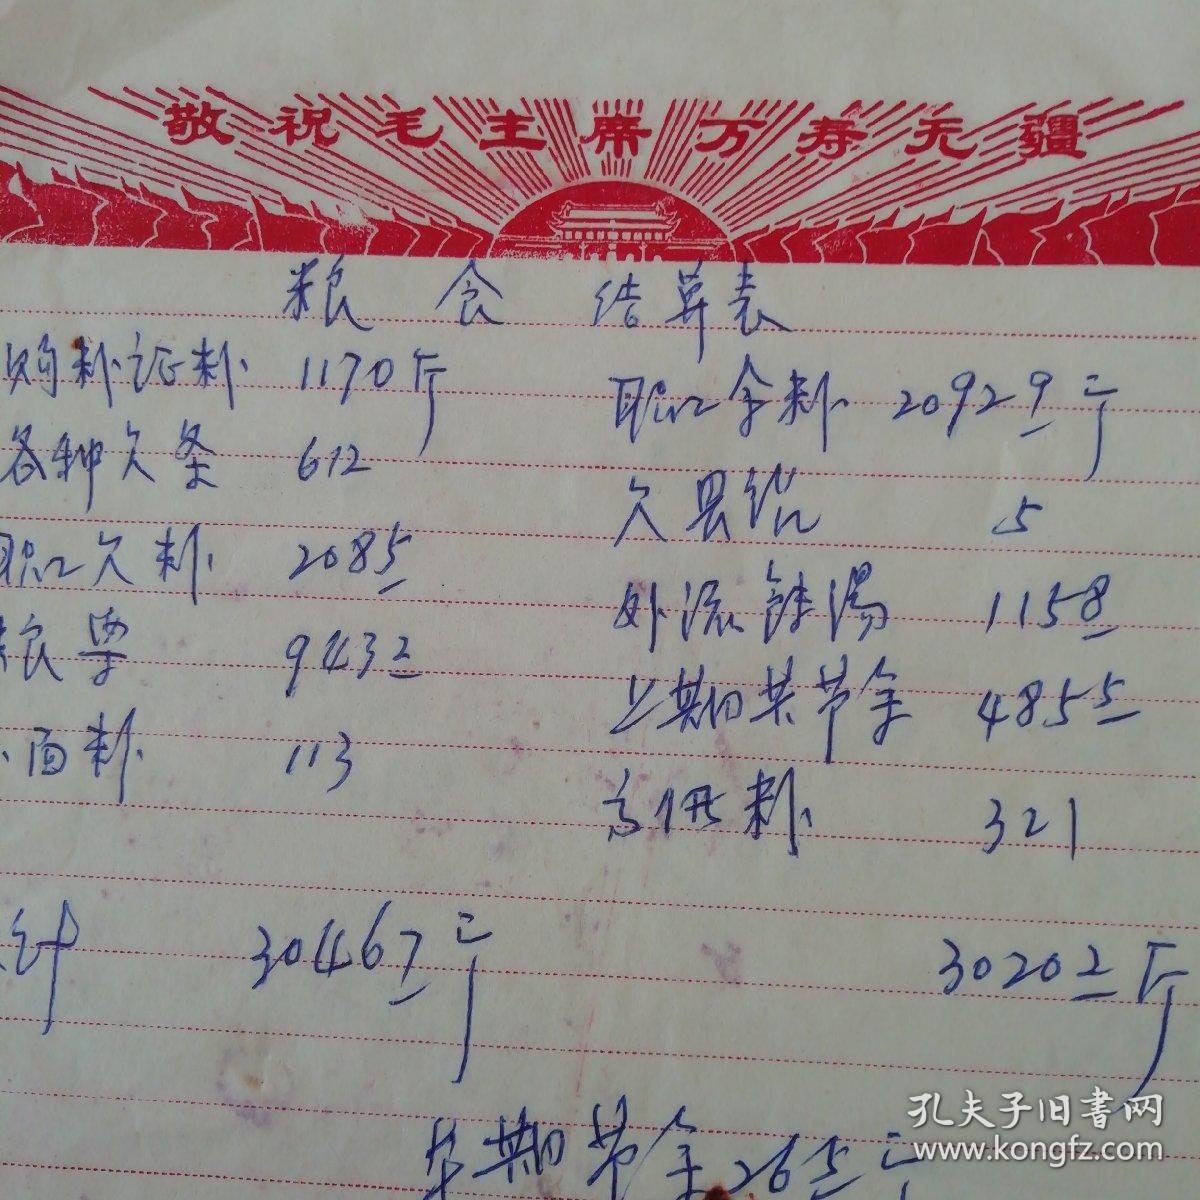 敬祝毛主席万寿无疆
粮食结算表
购籿证籿 1170斤
职工余籿 20929斤
各种欠条 612
欠县给 5
职工欠籿 2085
外流 1158
粮票 9432
上期共节余 4855
面籿 113
籿 321
计 30467斤
30202斤
本期节余265斤
孔夫子旧書网
www.kongfz.com